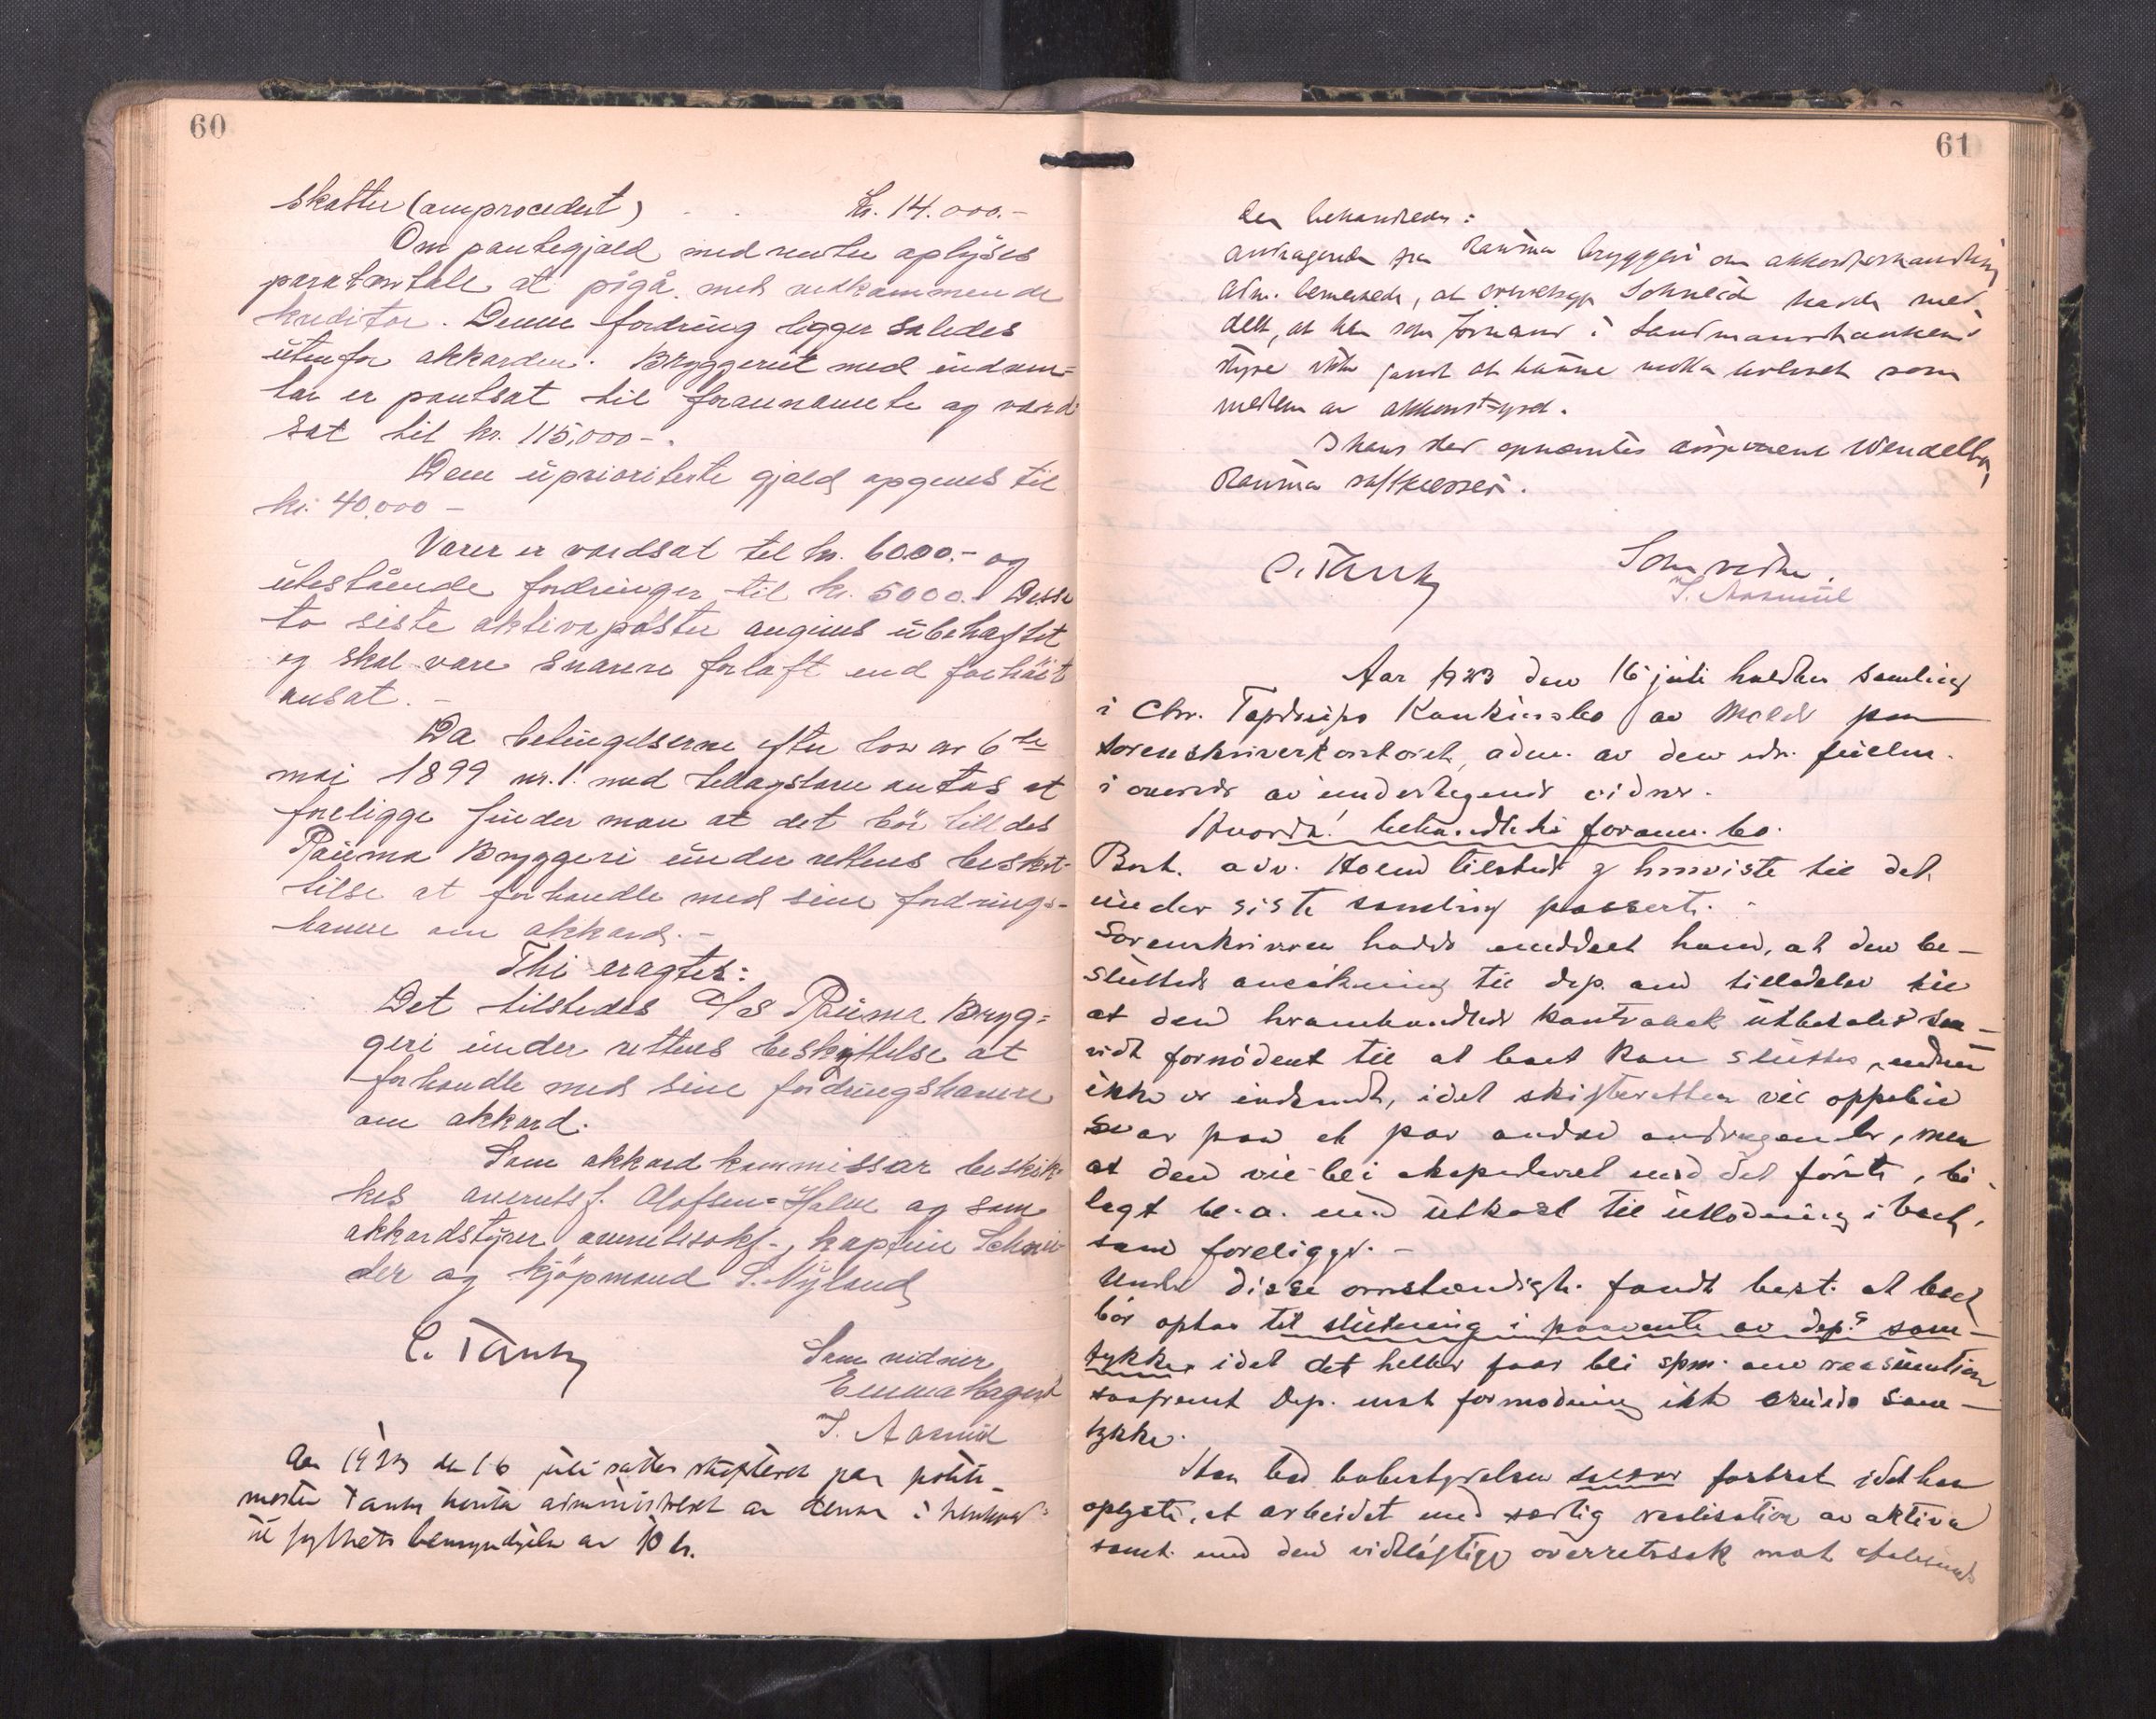 60
skatter (omprocedert) . . kr. 14.000.-
Om pantegjæld med renter oplyses
paratavtale at pågå med vedkommende
kreditor. Denne fordring ligger således
utenfor akkorden. Bryggeriet med indven-
tar er pantsat til forannævnte og værd-
sat til kr. 115.000-.
Den uprioriterte gjæld opgives til
kr. 40.000 -
Varer er værdsat til kr. 6000.- og
utestående fordringer til kr. 5000.- Disse
to siste aktivaposter angives ubeheftet
og skal være snarere for lavt end for höit
ansat. -
Da betingelserne efter lov av 6te
mai 1899 nr. 1. med tillægslove antas at
foreligge finder man at det bör tilldes
Rauma Bryggeri under rettens beskyt-
telse at forhandle med sine fordrings-
havere om akkord. -
Thi eragtes:
Det tilstedes A/S Rauma Bryg-
geri under rettens beskyttelse at
forhandle med sine fordringshavere
om akkord.
Som akkordkommissær beskik-
kes overretssf. Olafsen-Holm og som
akkordstyrer overretssakf., kaptein Schnei-
der og kjöpmand S. Nyland
C. Tank
Som vidner
Emma Hagerup
J. Aasmul
Aar 1923 den 16 juli sattes skifteret paa politi-
mester Tanks kontor administrert av denne i henhold
til fylkets bemyndigelse av 10 ds.
61
Der behandledes:
Andragende fra Rauma bryggeri om akkordforhandling
Adm. bemerkede, at overretssf. Schneider hadde med-
delt, at han som formand i Landmandsbankens
styre ikke fandt at kunne motta hvervet som
medlem av akkordstyret.
I hans sted opnævntes disponent Wendelbo,
Rauma saftpresseri.
C. Tank
Som vidne.
J. Aasmul
Aar 1923 den 16 juli holdtes samling
i Chr. Konkursbo av Molde paa
sorenskriverkontoret, adm. av den edv. fuldm.
i overvær av undertegnede vidner.
Hvorda! behandledes forann. bo.
Best. adv. Holm tilstede og henviste til det
under siste samling passerte. -
Sorenskriveren hadde meddelt ham, at den be-
sluttede ansökning til dep. om tilladelse til
at den kontrabek utbetales saa-
vidt fornödent til at boet kan sluttes, endnu
ikke er indsendt, idet skifteretten vil oppebie
svar paa et par andre andragender, men
at den vil bli ekspedert med det förste, bi-
lagt bl.a. med utkast til utlodning i boet,
som foreligger. -
Under disse omstændigh. fandt best. at boet
bör optas til slutning i paavente av dep.s sam-
tykke, idet det heller faar bli spm. om reasumtion
saafremt Dep. mot formodning ikke skulde sam-
tykke.
Han bad bobestyrelsen salær fastsat idet han
oplyste, at arbeidet med særlig realisation av aktiva
samt med den vidlöftige overretssak mot Aalesunds